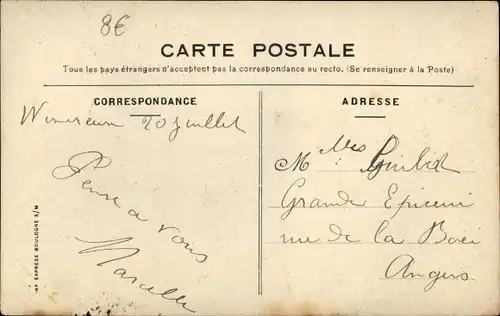 8€
CARTE POSTALE
Tous les pays étrangers n'acceptent pas la correspondance au recto. (Se renseigner à la Poste)
CORRESPONDANCE
Wimereux 20 juillet
Pense à vous
Marcelle
ADRESSE
M Mes
Grande Epicerie
rue de la
Angers
EXPRESS BOULOGNE S/M